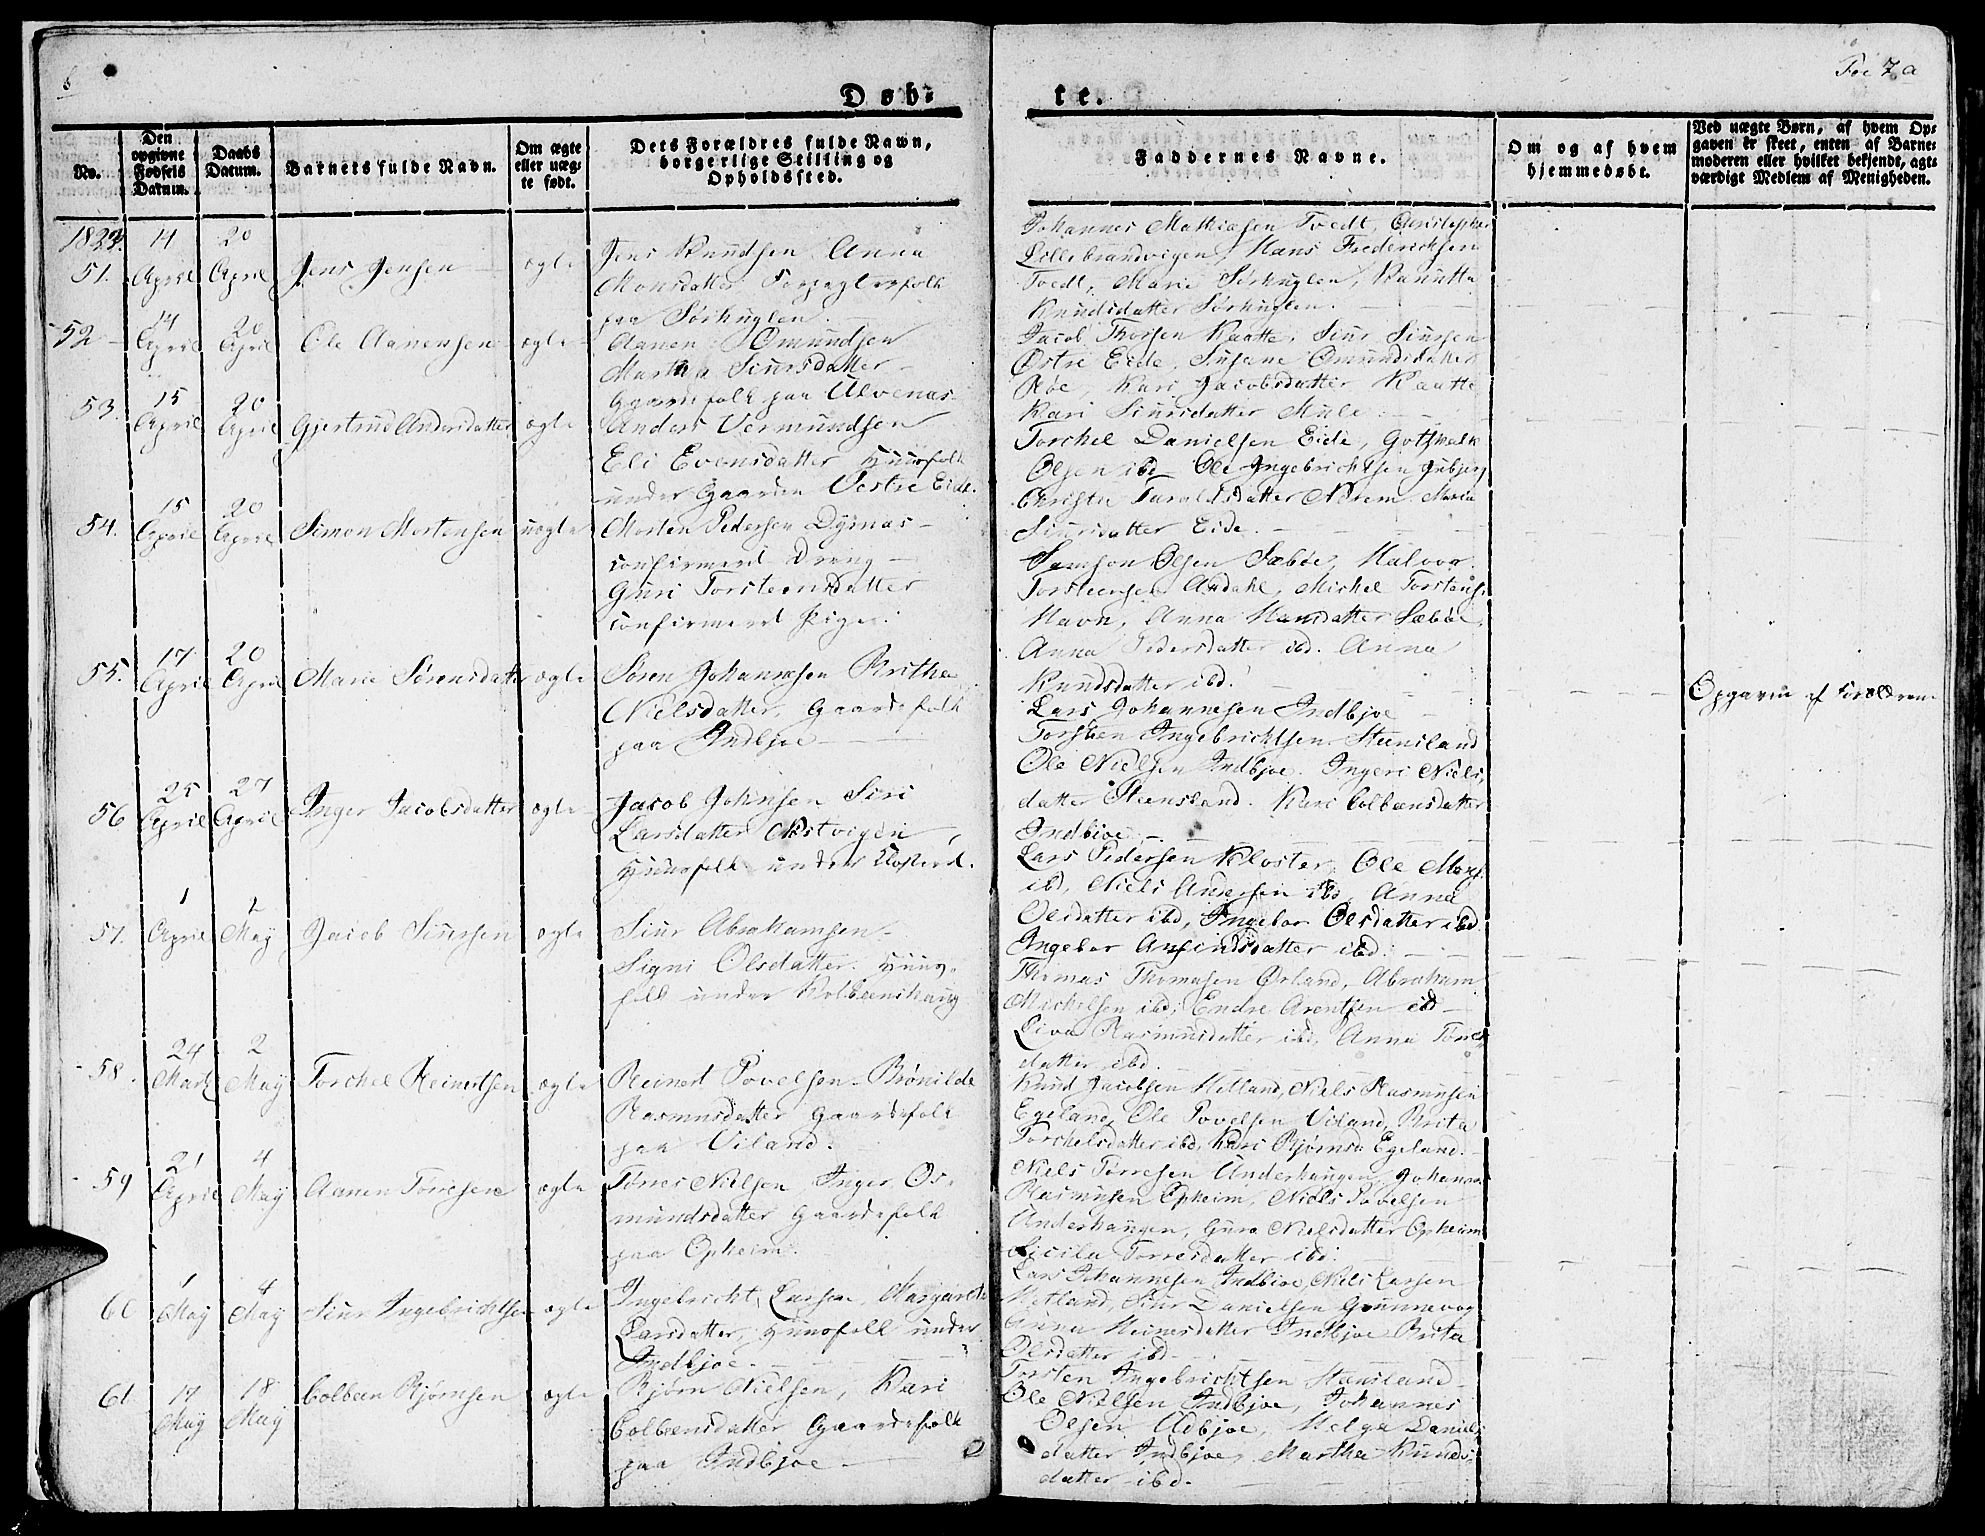 6
Foe 7 a
Døb-
te.
No.
Den opgivne Fødsels Datum.
Daabs Datum.
Barnets fulde Navn.
Om ægte eller uægte født.
Dets Forældres fulde Navn, borgerlige Stilling og Opholdssted.
Faddernes Navne.
Om og af hvem hjemmedøbt.
Ved uægte Børn, af hvem Opgaven er skeet, enten af Barnemoderen eller hvilket bekjendt, agtværdigt Medlem af Menigheden.
1823.
51. 14 April 20 April Jens Jensen ægte
Jens Knudsen Anna
Monsdatter Forpagterfolk
paa Sørhuglen.
Johannes Mathiasen Tvedt, Christopher
Lillebrandvigen, Hans Fredericksen
Tvedt, Marie Sørhuglen, Kanutta
Knudsdatter Sørhuglen.
52 14 April 20 April Ole Aanensen ægte
Aanen Omundsen
Martha Siursdatter
Gaardefolk paa Ulvenæs
Jacob Thorsen Kaatte, Siur Siursen
Østre Eide, Susane Omundsdatter
Røe, Kari Jacobsdatter Kaatte
Kari Siursdatter Mule.
53. 15 April 20 April Gjertrud Andersdatter ægte
Anders Vermundsen
Eli Evensdatter Huusfolk
under Gaarden Vestre Eide.
Torchel Danielsen Eide, Gotskalk
Olsen ibd Ole Ingebrichtsen
Christa Taraldsdatter Nærem Maria
Siursdatter Eide.
54. 15 April 20 April Simon Mortensen uægte
Morten Pedersen Dysnæs
confirmeret Dreng
Guri Torsteensdatter
confirmeret Pige.
Samson Olsen Sæbøe, Halvor
Torsteensen Andahl, Michel Torstens.
Havn, Anna Hansdatter Sæbøe,
Anna Pedersdatter ibd. Anna
Knudsdatter ibd.
Opgaven af Forældrene
55. 17 April 20 April Marie Sørensdatter ægte
Søren Johannesen Brithe
Nielsdatter, Gaardefolk
paa Indbjoe
Lars Johannesen Indbjoe
Torsten Ingebrichtsen Steensland
Ole Nielsen Indbjoe. Ingeri Niels
datter Steensland. Kari Colbensdatter
Indbjoe.
56 25 April 27 April Inger Jacobsdatter ægte
Jacob Johnsen Siri
Larsdatter Nistvigen,
Huusfolk under Closteret.
Lars Pedersen Kloster, Ole Mons.
ibd, Niels Andersen ibd, Anna
Olsdatter ibd, Ingebor Olsdatter ibd
Ingebor Anfindsdatter ibd.
57. 1 April 1 May Jacob Siursen ægte
Siur Abrahamsen
Signi Olsdatter. Huus-
folk under Kolbeenshaug
Thomas Thomasen Ørland, Abraham
Michelsen ibd, Endre Arentsen ibd
Liva Rasmusdatter ibd, Anna Torres
datter ibd.
58. 24 Marts 2 May Torchel Reinertsen ægte
Reinert Povelsen Brønilde
Rasmusdatter Gaardefolk
paa Viland.
Knud Jacobsen Hetland, Niels Rasmusen
Egeland, Ole Povelsen Viland, Brita
Torchelsdatter ibd, Kari Bjørnsd. Egeland.
59 21 April 4 May Aanen Torresen ægte
Torres Nielsen Inger Os-
mundsdatter Gaardefolk
paa Opheim.
Niels Torresen Underhaugen, Johannes
Rasmusen Opheim, Niels Povelsen
Underhaugen, Guro Nielsdatter Opheim
Sicila Torresdatter ibd.
60 1 May 4 May Siur Ingebrichtsen ægte
Ingebricht Larsen, Margarete
Larsdatter, Huusfolk under
Indbjoe.
Lars Johannesen Indbjoe, Niels Larsen
Hetland, Siur Danielsen Grunnevog
Anna Heinesdatter Indbjoe Brita
Olsdatter ibd.
61 17 May 18 May Colben Bjørnsen ægte
Bjørn Nielsen, Kari
Colbensdatter Gaardefolk
paa Indbjoe
Torsten Ingebrichtsen Steensland
Ole Nielsen Indbjoe, Johannes
Olsen Udbjoe, Helga Daniels
datter Indbjoe, Martha Knuds
datter ibd.